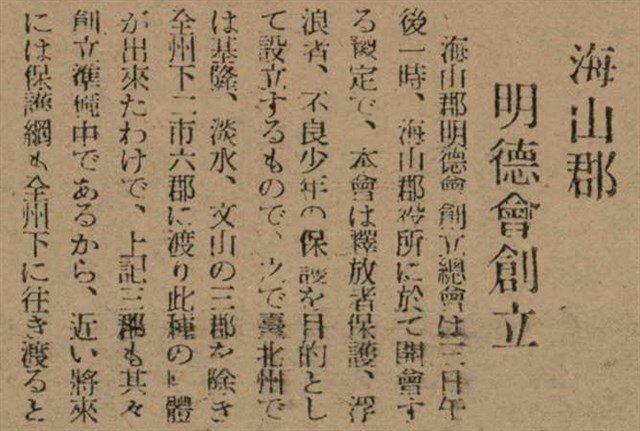 海山郡
明德會創立
海山郡明德會創立總會は三日午
後一時、海山郡役所に於て開會す
る豫定で、本會は釋放者保護、浮
浪者、不良少年の保護を目的とし
て設立するもので、之で臺北州で
は基隆、淡水、文山の三郡を除き
全州下二市六郡に渡り此種の團體
が出來たわけで、上記三郡も其々
創立準備中であるから、近い將來
には保護網も全州下に往き渡ると